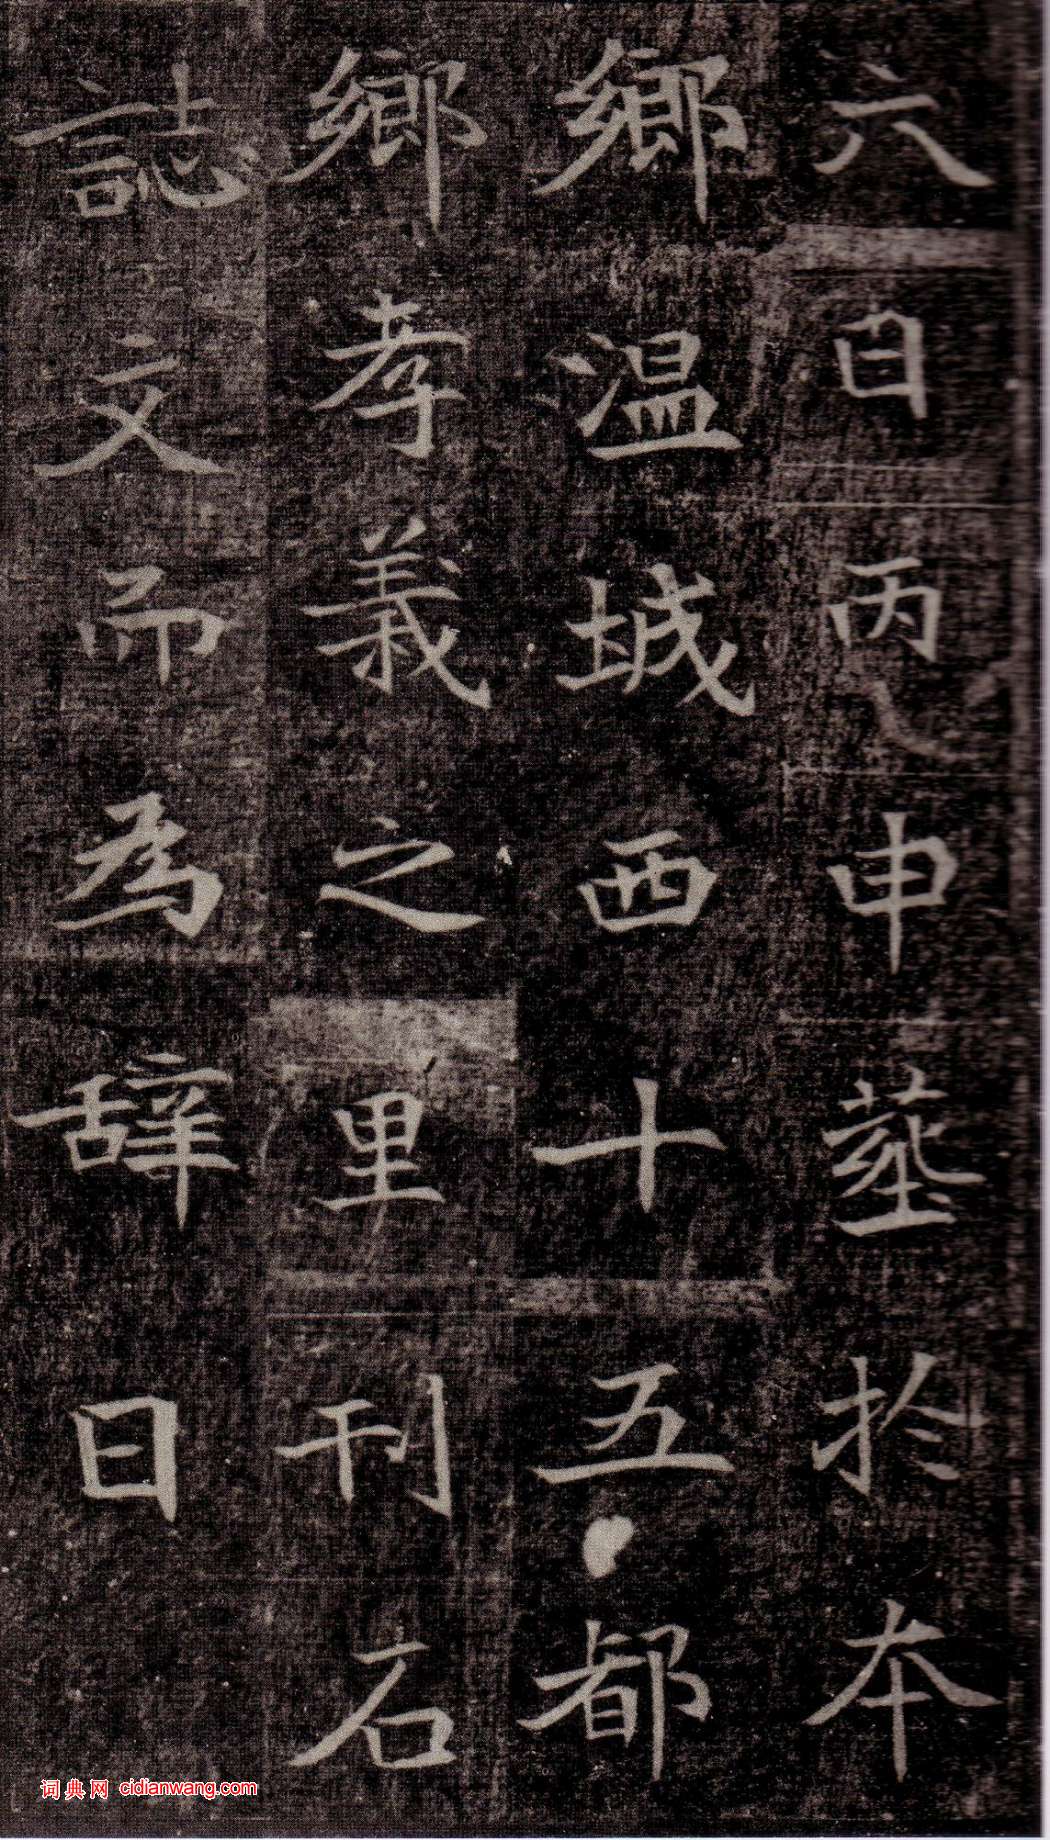 六日丙申葬於本
鄉温城西十五都
鄉孝義之里刊石
誌文而為辞曰
词典网 cidianwang.com